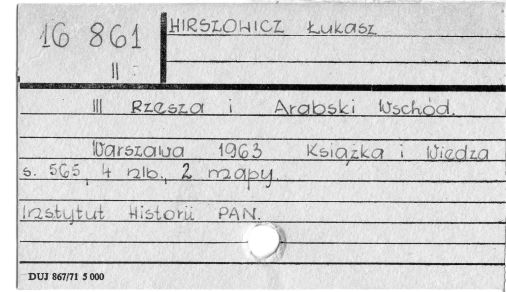 16 861
II
HIRSZOWICZ Łukasz
III Rzesza i Arabski Wschód.
Warszawa 1963 Książka i Wiedza
s. 565, 4 nlb., 2 mapy.
Instytut Historii PAN.
DUJ 867/71 5 000